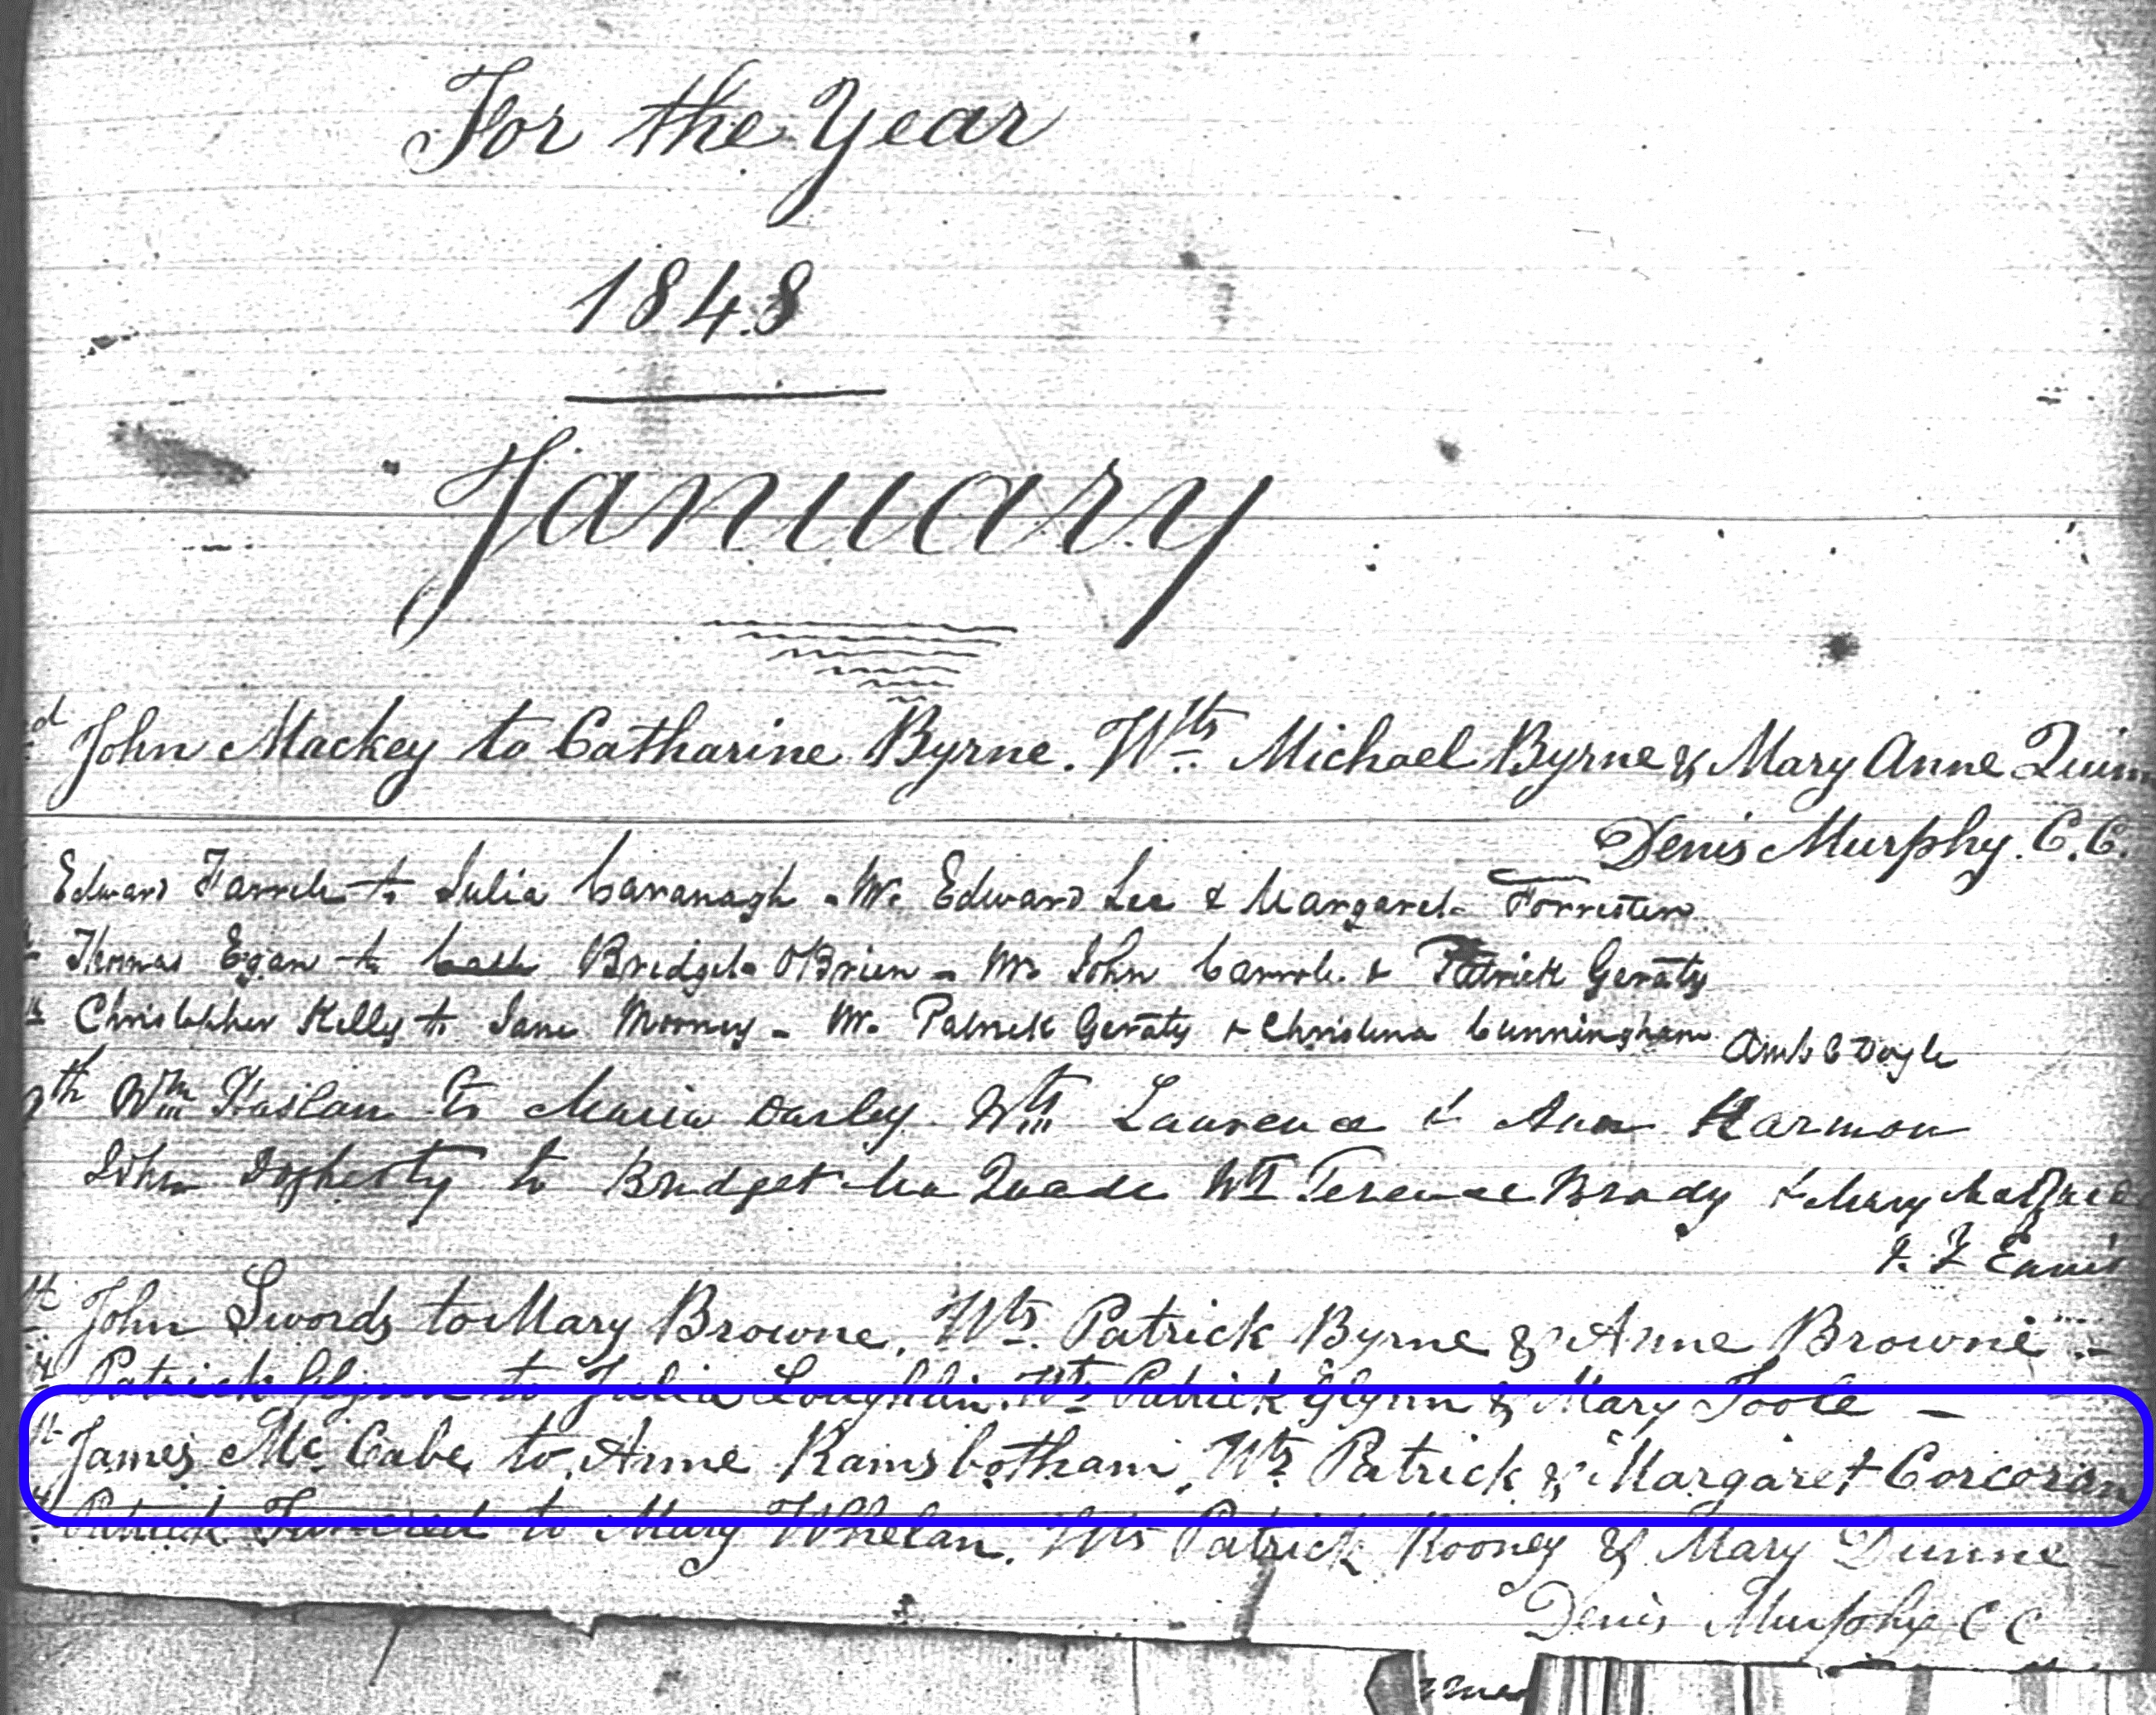 For the Year
1848
January
d John Mackey to Catharine Byrne. Wts Michael Byrne & Mary Anne Quinn
Denis Murphy. C.C.
Edward Farrell to Julia Cavanagh - W. Edward Lee & Margaret Forrester
Thomas Egan to Bridget OBrien - W. John Carroll & Patrick Geraty
Christopher Kelly to Jane Mooney - W. Patrick Geraty & Christina Cunningham
Doyle
th Wm Haslam to Maria Darley Wtt Laurence & Ann Harmon
John Dogherty to Bridget Mc Quade Wtt Terence Brady & Mary
Ennis
John Swords to Mary Browne. Wts. Patrick Byrne & Anne Browne -
Patrick Glynn to Julia Loughlin. Wts Patrick Glynn & Mary Toole -
James Mc Cabe to Anne Ramsbotham, Wts Patrick & Margaret Corcoran
Patrick to Mary Whelan. Wts Patrick Rooney & Mary Dunne -
Denis Murphy C C